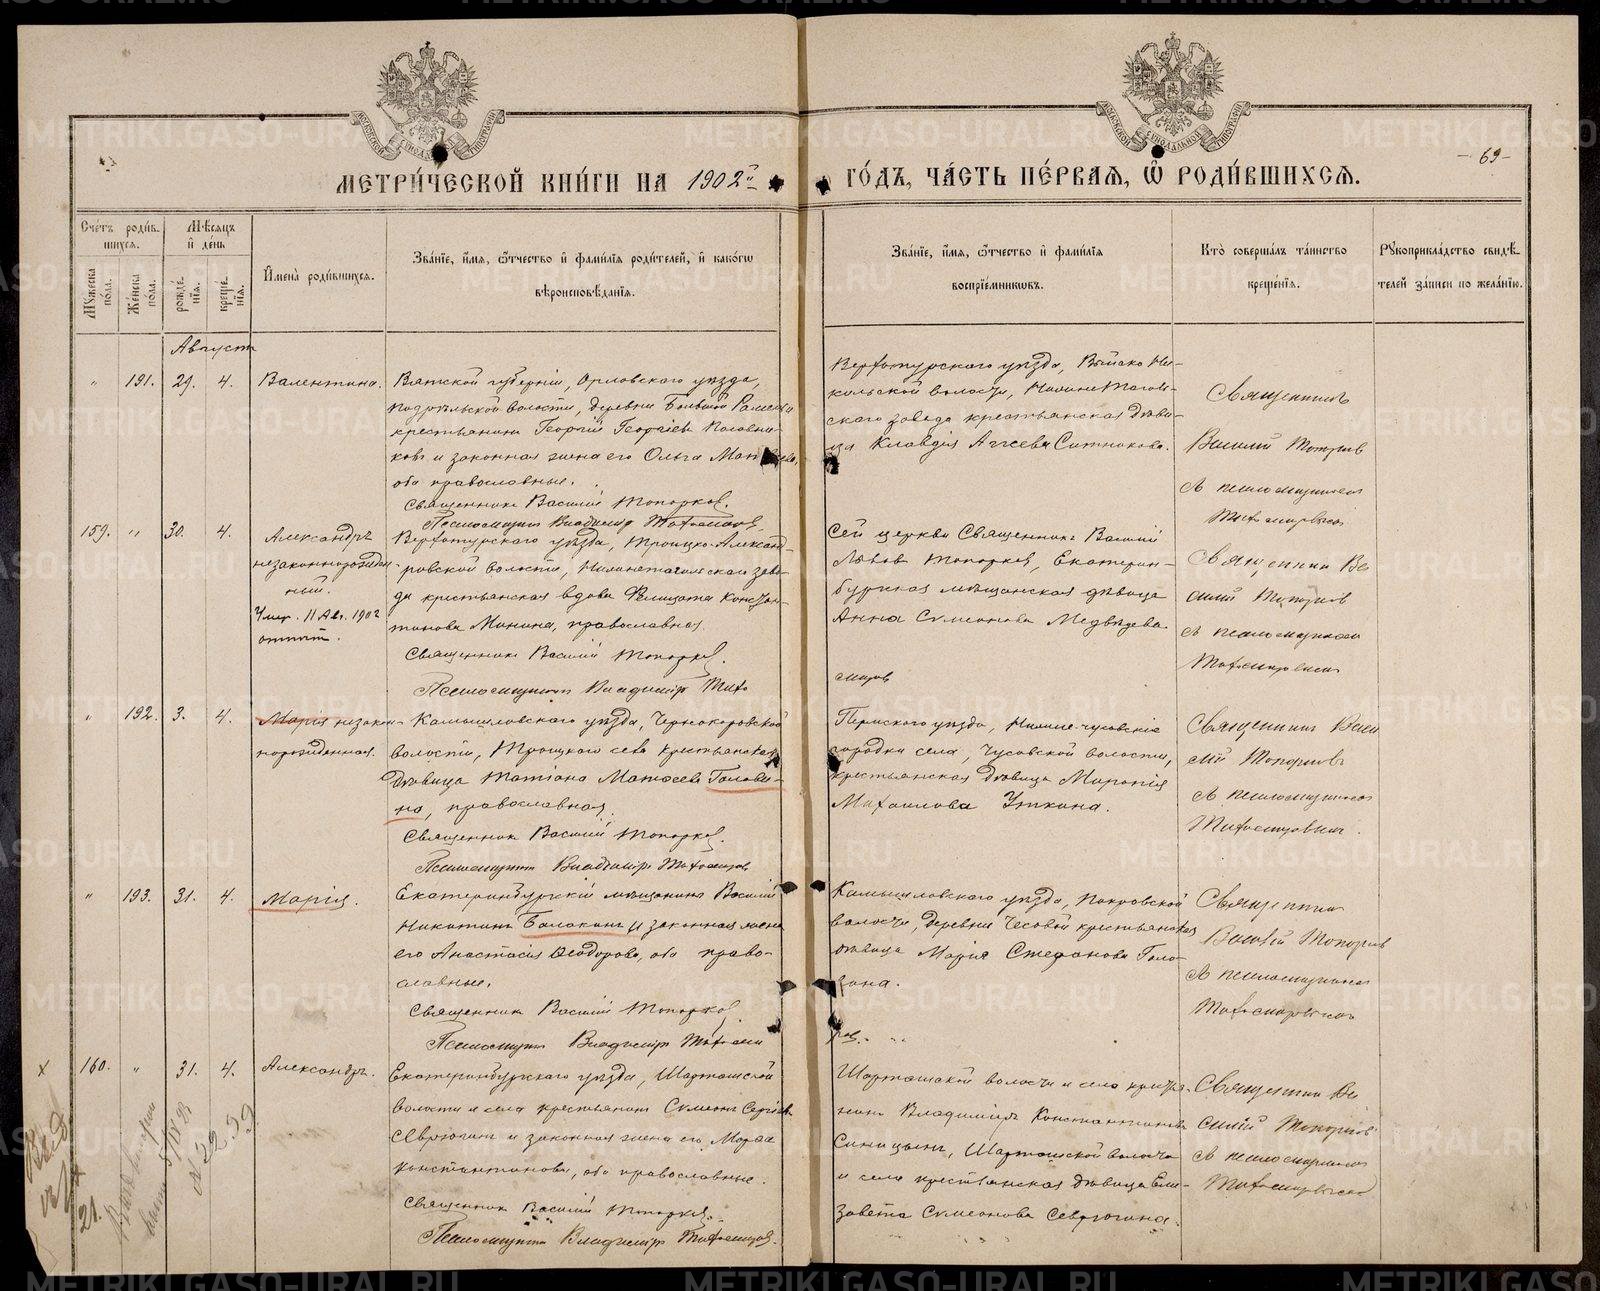 - 69 -
МЕТРИ́ЧЕСКОЙ КНИ́ГИ НА 1902й ГО́ДЪ, ЧА́СТЬ ПЕ́РВАЯ, Ѿ РОДИ́ВШИХСЯ.
Сче́тъ роди́вшихся.
Му́жеска по́ла.
Же́нска по́ла.
Мѣ́сяцъ и҆ де́нь
рожде́нїя.
креще́нїя.
И҆мена̀ роди́вшихся.
Зва́нїе, и҆́мя, ѻ҆́тчество и҆ фами́лїя роди́телей, и҆ како́гѡ
вѣроисповѣ́данїя.
Зва́нїе, и҆́мя, ѻ҆́тчество и҆ фами́лїя
воспрїе́мникѡвъ.
Кто̀ соверша́лъ та́инство
креще́нїя.
Рꙋкоприкла́дство свидѣ́телей за́писи по жела́нїю.
Августъ
" 191. 29. 4. Валентина.
Вятской губерніи, Орловскаго уѣзда,
волости, деревни Большой
крестьянинъ Георгій Георгіевъ Половни-
ковъ и законная жена его Ольга
оба православные.
Священникъ Василій Топорковъ.
Псаломщикъ Владиміръ Тихомировъ.
Верхотурскаго уѣзда, Выйско Ни-
кольской волости, Нижнетагиль-
скаго завода крестьянская дѣви-
ца Клавдія Аггеева Ситникова.
Священникъ
Василій Топорковъ
съ псаломщикомъ
Тихомировымъ
159. " 30. 4. Александръ
незаконнорожден-
ный.
Умер. 11 Авг. 1902
Верхотурскаго уѣзда, Троицко-Александ-
ровской волости, Нижнетагильскаго заво-
да крестьянская вдова Фелицата Констан-
тинова Минина, православная.
Священникъ Василій Топорковъ.
Псаломщикъ Владиміръ Тихо
мировъ
Сей церкви Священникъ Василій
Львовъ Топорковъ, Екатерин-
бургская мѣщанская дѣвица
Анна Симеонова Медвѣдева.
Священникъ Ва
силій Топорковъ
съ псаломщикомъ
Тихомировымъ
" 192. 3. 4. Марія незакон-
норожденная.
Камышловскаго уѣзда, Черн­окоровской
волости, Троицкаго села крестьянская
дѣвица Татіана Матѳеева Голови-
на, православная.
Священникъ Василій Топорковъ.
Псаломщикъ Владиміръ Тихомировъ
Пермскаго уѣзда, Нижне-чусовскіе
городки села, Чусовской волости,
крестьянская дѣвица Миропія
Михаилова Уткина.
Священникъ Васи
лій Топорковъ
съ псаломщикомъ
Тихомировымъ.
" 193. 31. 4. Марія.
Екатеринбургскій мѣщанинъ Василій
Никитинъ Балакинъ и законная жена
его Анастасія Ѳеодорова, оба право-
славные.
Священникъ Василій Топорковъ.
Псаломщикъ Владиміръ Тихоми
ровъ.
Камышловскаго уѣзда, Покровской
волости, деревни Часовой крестьянская
дѣвица Марія Стефанова Голо-
Священникъ
Василій Топорковъ
съ псаломщикомъ
Тихомировымъ
х 160. " 31. 4. Александръ.
Екатеринбургскаго уѣзда, Шарташской
волости и села крестьянинъ Симеонъ Сергіевъ
Севрюгинъ и законная жена его Марѳа
Константинова, оба православные.
Священникъ Василій Топорковъ.
Псаломщикъ Владиміръ Тихомировъ.
Шарташской волости и села крестья-
нинъ Владиміръ Константиновъ
Синицынъ, Шарташской волости
и села крестьянская дѣвица Ели-
завета Симеонова Севрюгина.
Священникъ Ва
силій Топорковъ
съ псаломщикомъ
Тихомировымъ
21.
METRIKI.GASO-URAL.RU